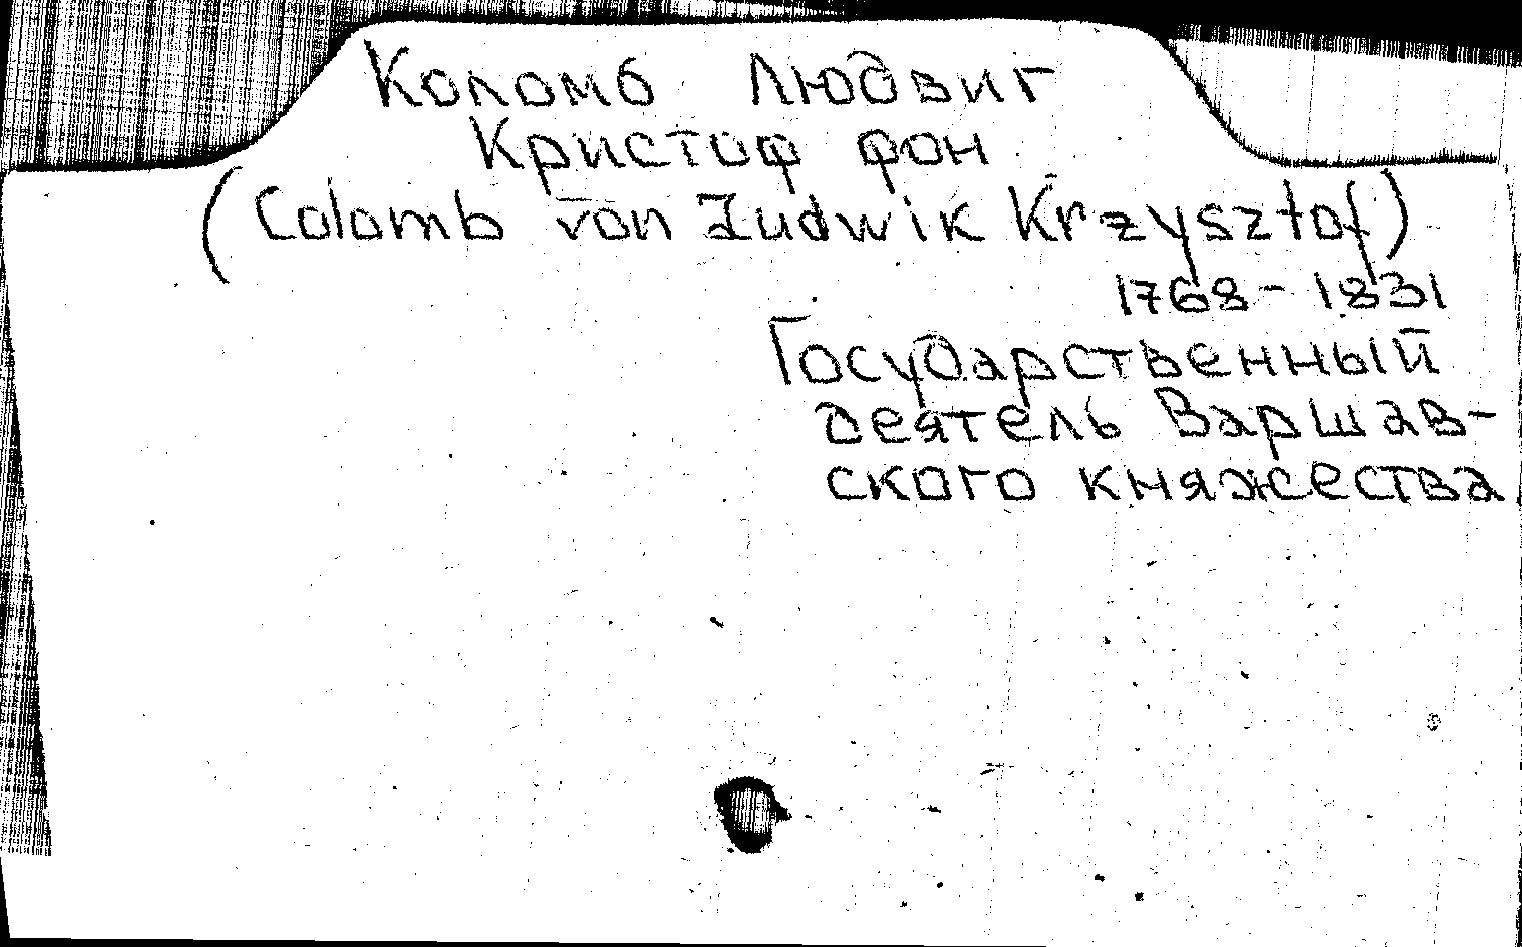 Коломб Людвиг
Кристоф фон
(Colomb von Ludwik Krzysztof)
1768-1831
Государственный
деятель Варшав-
ского княжества